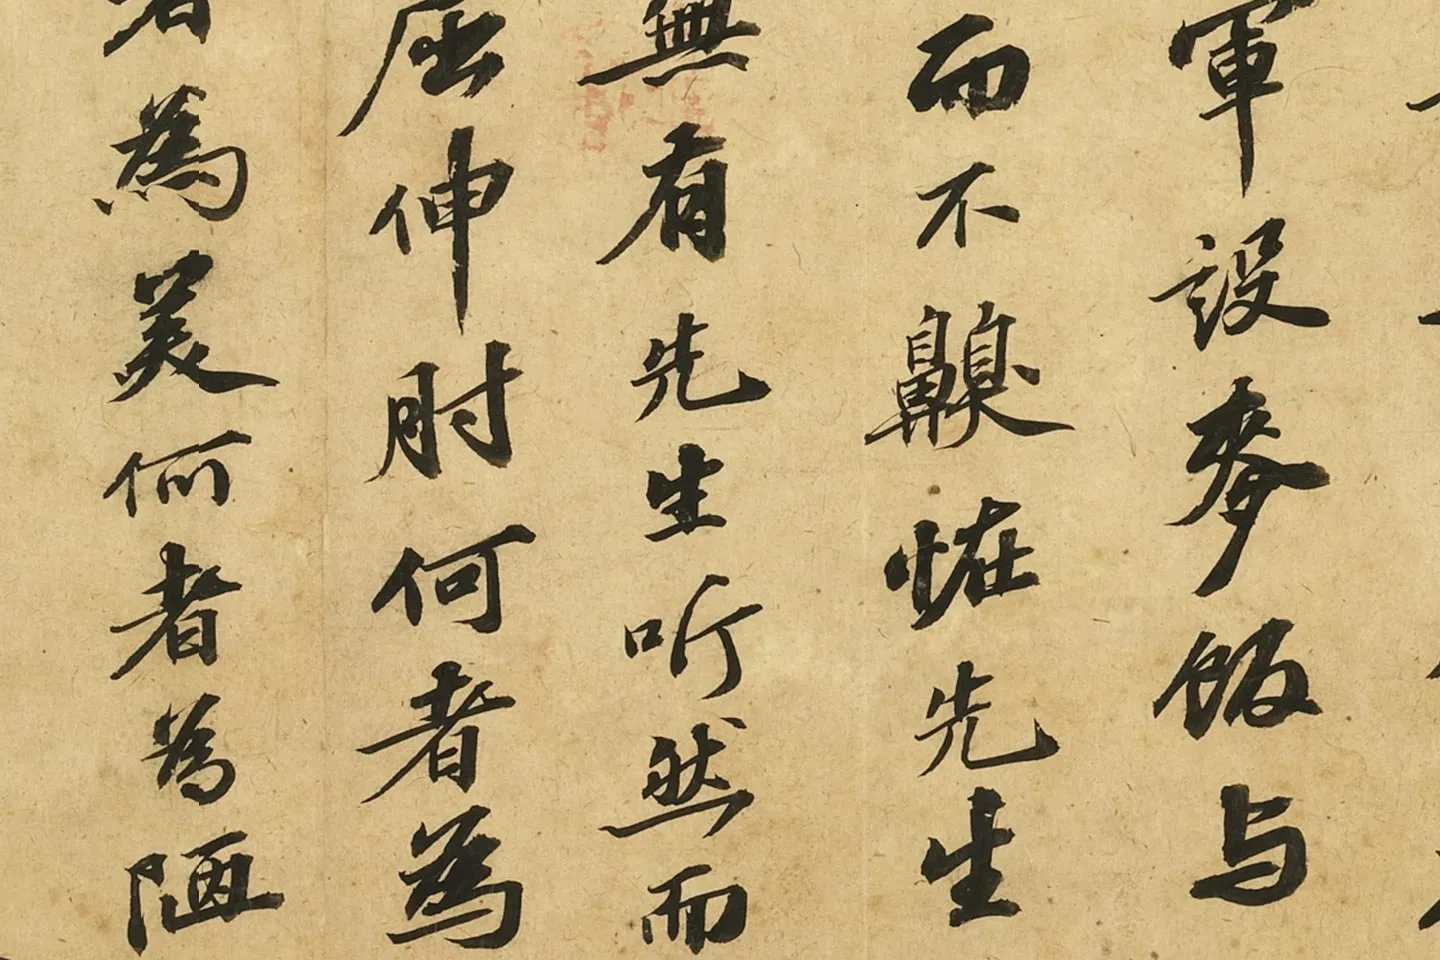 軍設麥飯与
而不齅恠先生
無有先生听然而
屈伸肘何者為
者為美何者為陋